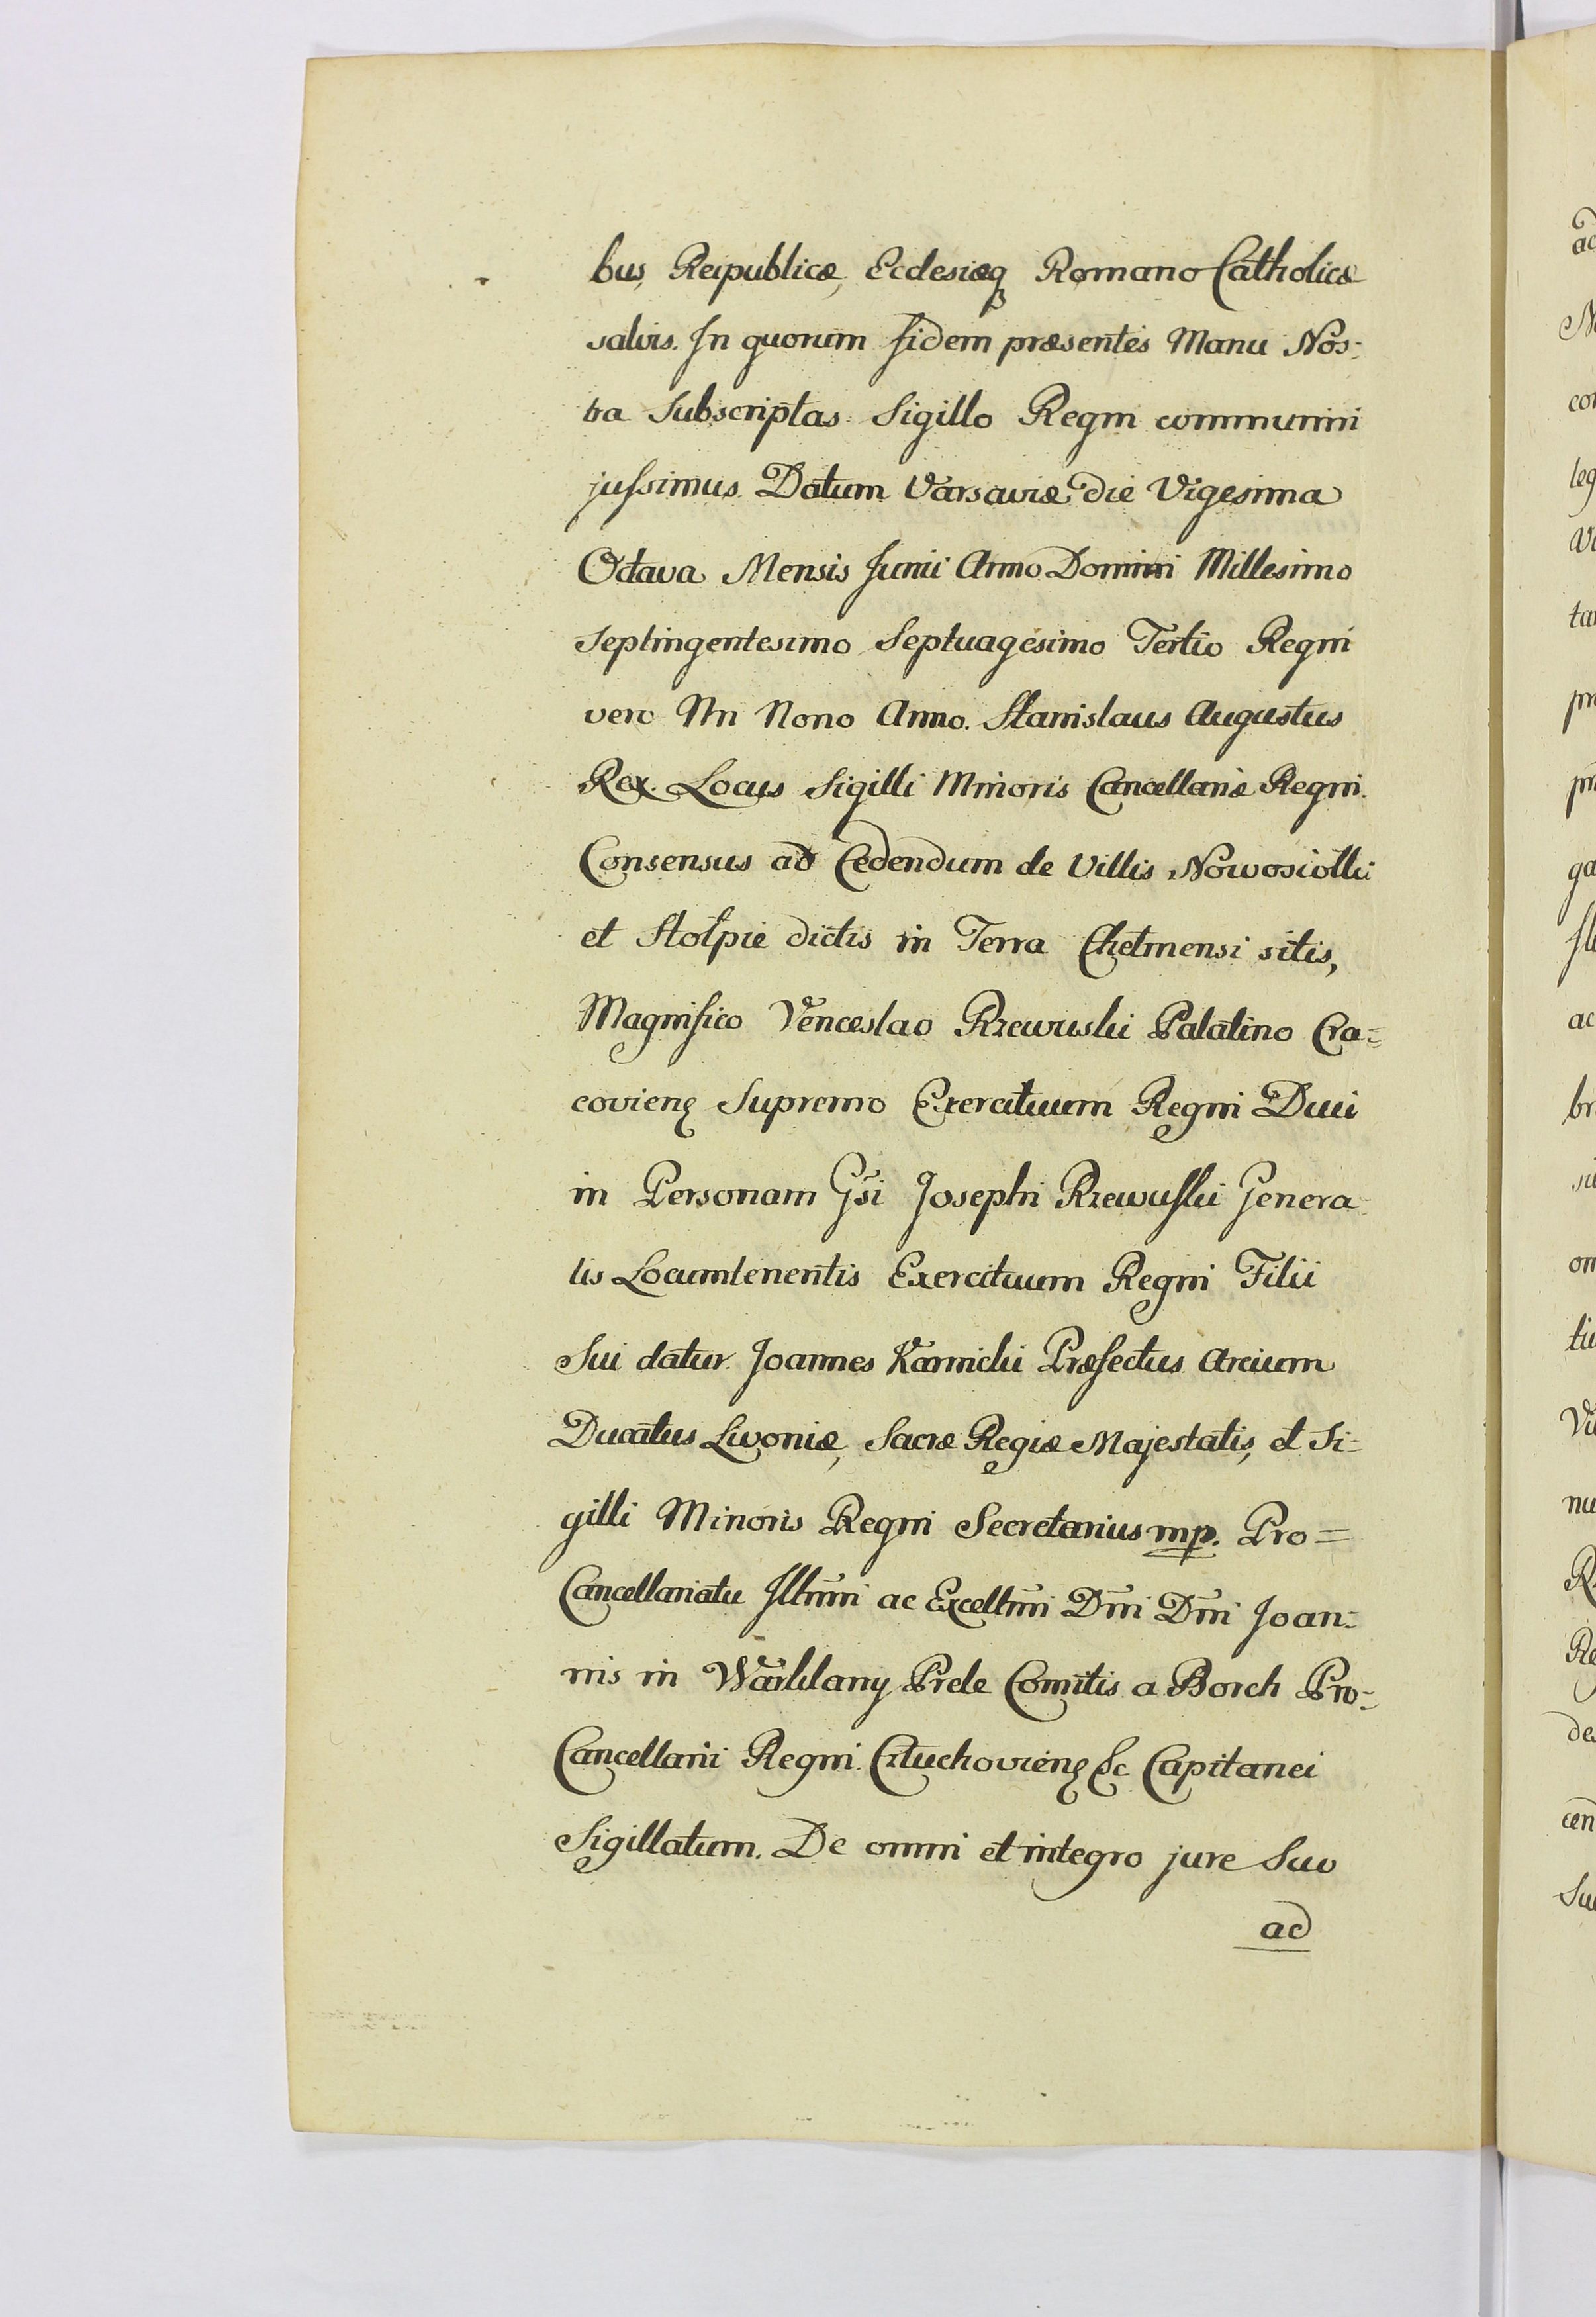 bus, Reipublicæ, Ecclesiæq Romano Catholicæ
salvis. In quorum fidem præsentes Manu Nos-
tra Subscriptas Sigillo Regni communiri
jussimus. Datum Varsaviæ die Vigesima
Octava Mensis Junii Anno Domini Millesimo
Septingentesimo Septuagesimo Tertio Regni
vero Nri Nono Anno. Stanislaus Augustus
Rex. Locus Sigilli Minoris Cancellariæ Regni.
Consensus ad Cedendum de Villis Nowosiołki
et Stołpie dictis in Terra Chełmensi sitis,
Magnifico Venceslao Rzewuski Palatino Cra=
coviens Supremo Exercituum Regni Duci
in Personam Gsi Josephi Rzewuski Genera
lis Locumtenentis Exercituum Regni Filii
Sui datur. Joannes Karnicki Præfectus Arcium
Ducatus Livoniæ, Sacræ Regiæ Majestatis, et Si=
gilli Minoris Regni Secretarius mp. Pro=
Cancellariatu Illmi ac Excellmi Dni Dni Joan-
nis in Warklany Prele Comitis a Borch Pro-
Cancellarii Regni. Człuchoviens &c Capitanei
Sigillatum. De omni et integro jure Suo
ad